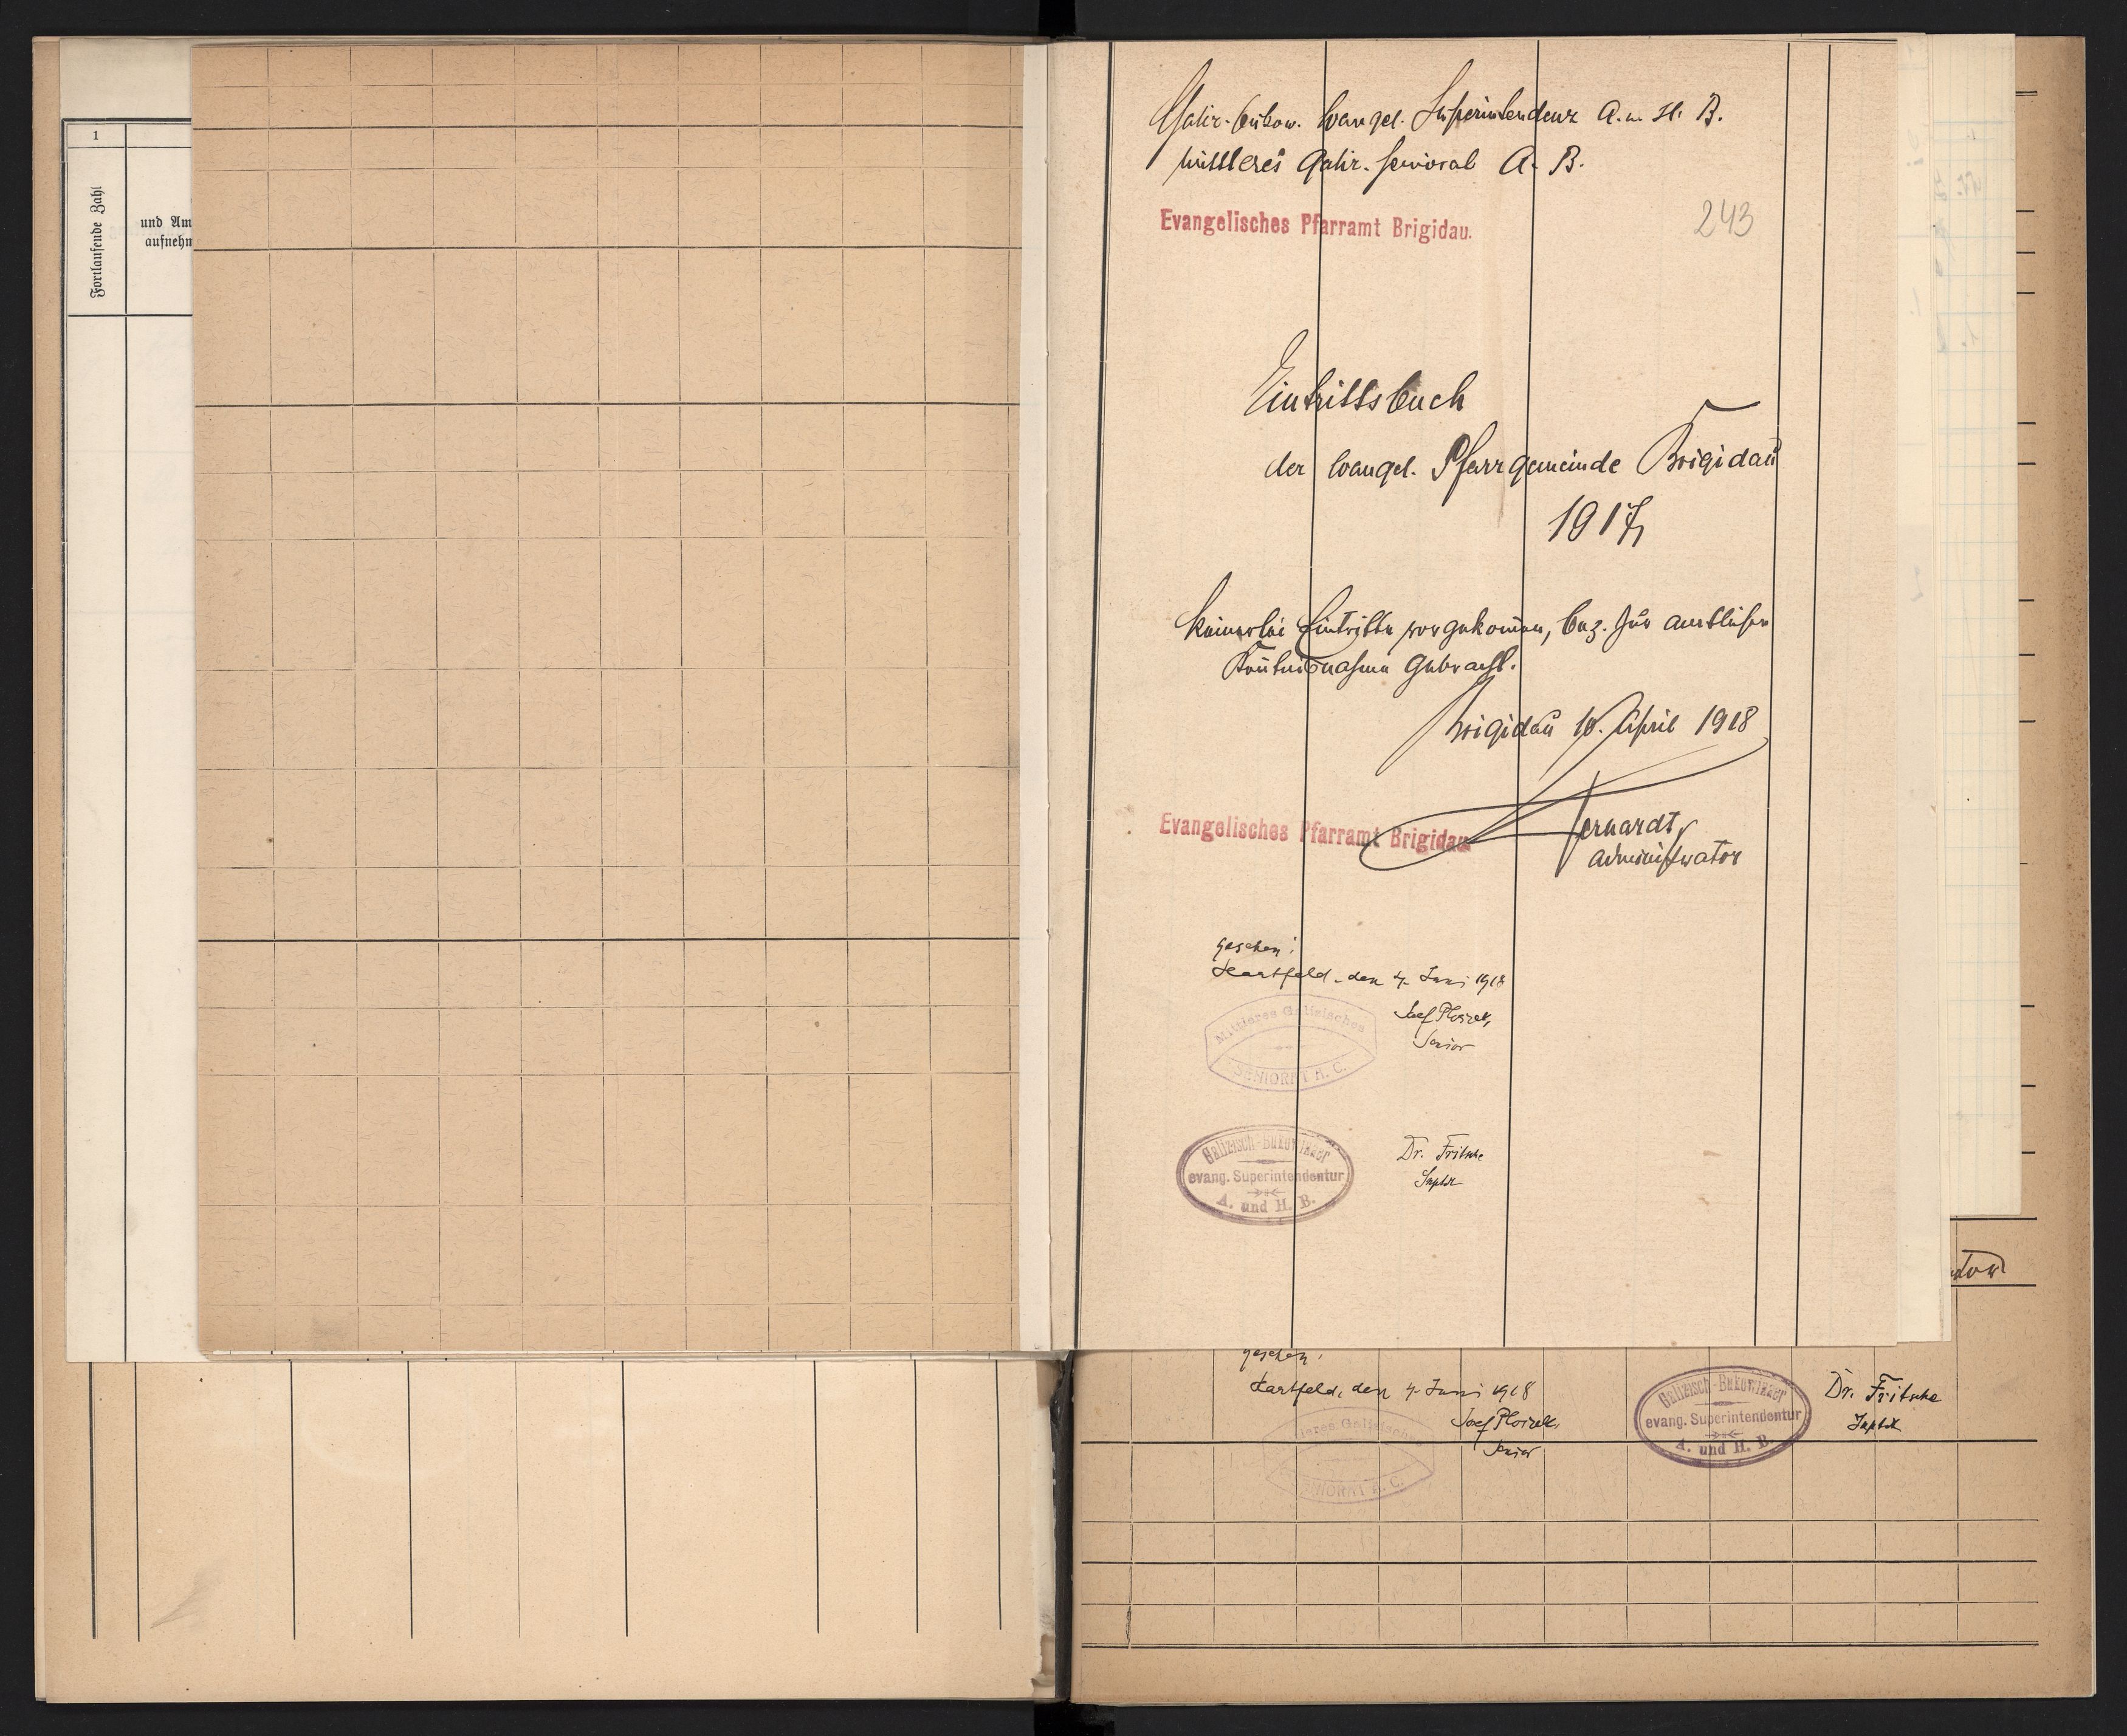 1
Fortlaufende Zahl
und Am
aufnehm
Galiz.-bukow. evangel. Superintendenz A. u. H. B.
Mittleres galiz. Seniorat A. B.
Evangelisches Pfarramt Brigidau.
243
Eintrittsbuch
der evangel. Pfarrgemeinde Brigidau
1917
Keinerlei Eintritte vorgekommen, bez. zur amtlichen
Kenntnisnahme gebracht.
Brigidau 10. April 1918
Evangelisches Pfarramt Brigidau.
Administrator
gesehen:
Hartfeld, den 4. Juni 1918
Josef Ploszek,
Senior
Mittleres Galizisches
SENIORAT A. C.
Galizisch-Bukowinaer
evang. Superintendentur
A. und H. B.
Dr. Fritsche
Suptdt
gesehen:
Hartfeld, den 4. Juni 1918
Josef Ploszek,
Senior
leres Galizisches
SENIORAT A. C.
Galizisch-Bukowinaer
evang. Superintendentur
A. und H. B.
Dr. Fritsche
Suptdt